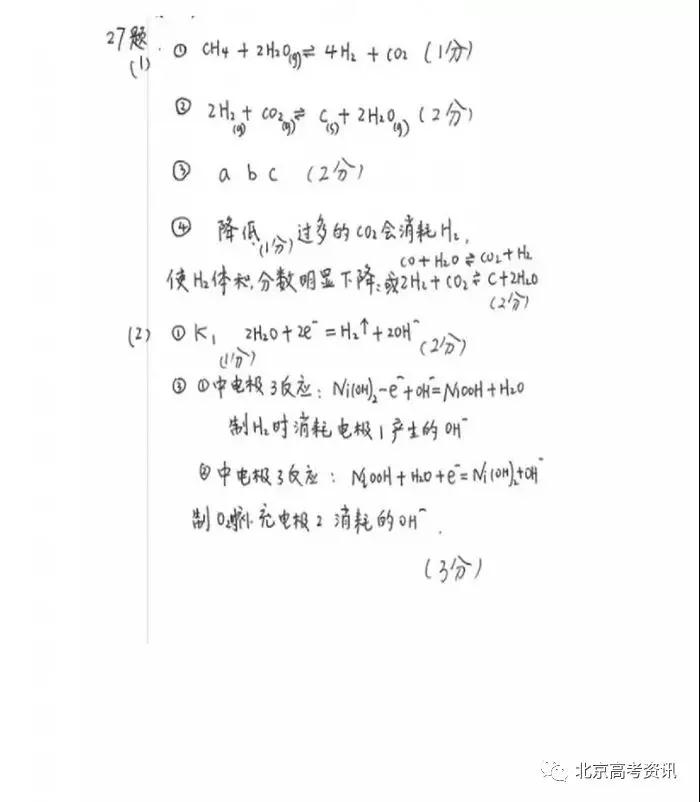 27题.
(1) ① CH4 + 2H2O(g) ⇌ 4H2 + CO2 (1分)
② 2H2(g) + CO2(g) ⇌ C(s) + 2H2O(g) (2分)
③ a b c (2分)
④ 降低.(1分) 过多的CO2会消耗H2,
CO + H2O ⇌ CO2 + H2
使H2体积分数明显下降; 或2H2 + CO2 ⇌ C + 2H2O
(2分)
(2) ① K1 (1分) 2H2O + 2e⁻ = H2↑ + 2OH⁻ (2分)
③ ①中电极3反应: Ni(OH)2 - e⁻ + OH⁻ = NiOOH + H2O
制H2时消耗电极1产生的OH⁻
②中电极3反应: NiOOH + H2O + e⁻ = Ni(OH)2 + OH⁻
制O2时补充电极2消耗的OH⁻.
(3分)
北京高考资讯